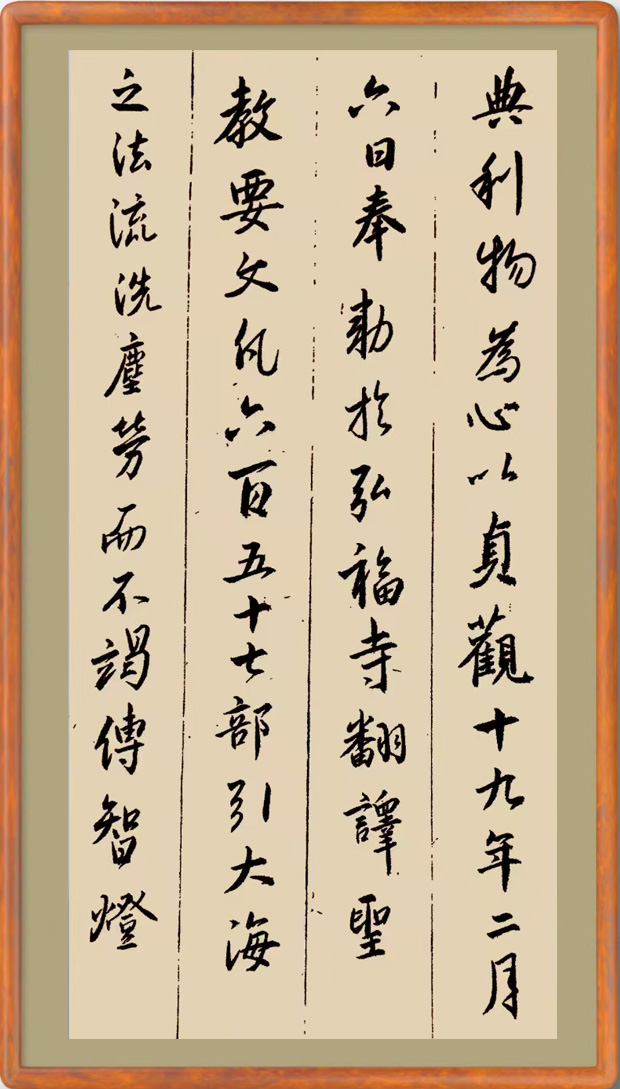 典利物為心以貞觀十九年二月
六日奉勅於弘福寺翻譯聖
教要文凡六百五十七部引大海
之法流洗塵勞而不竭傳智燈